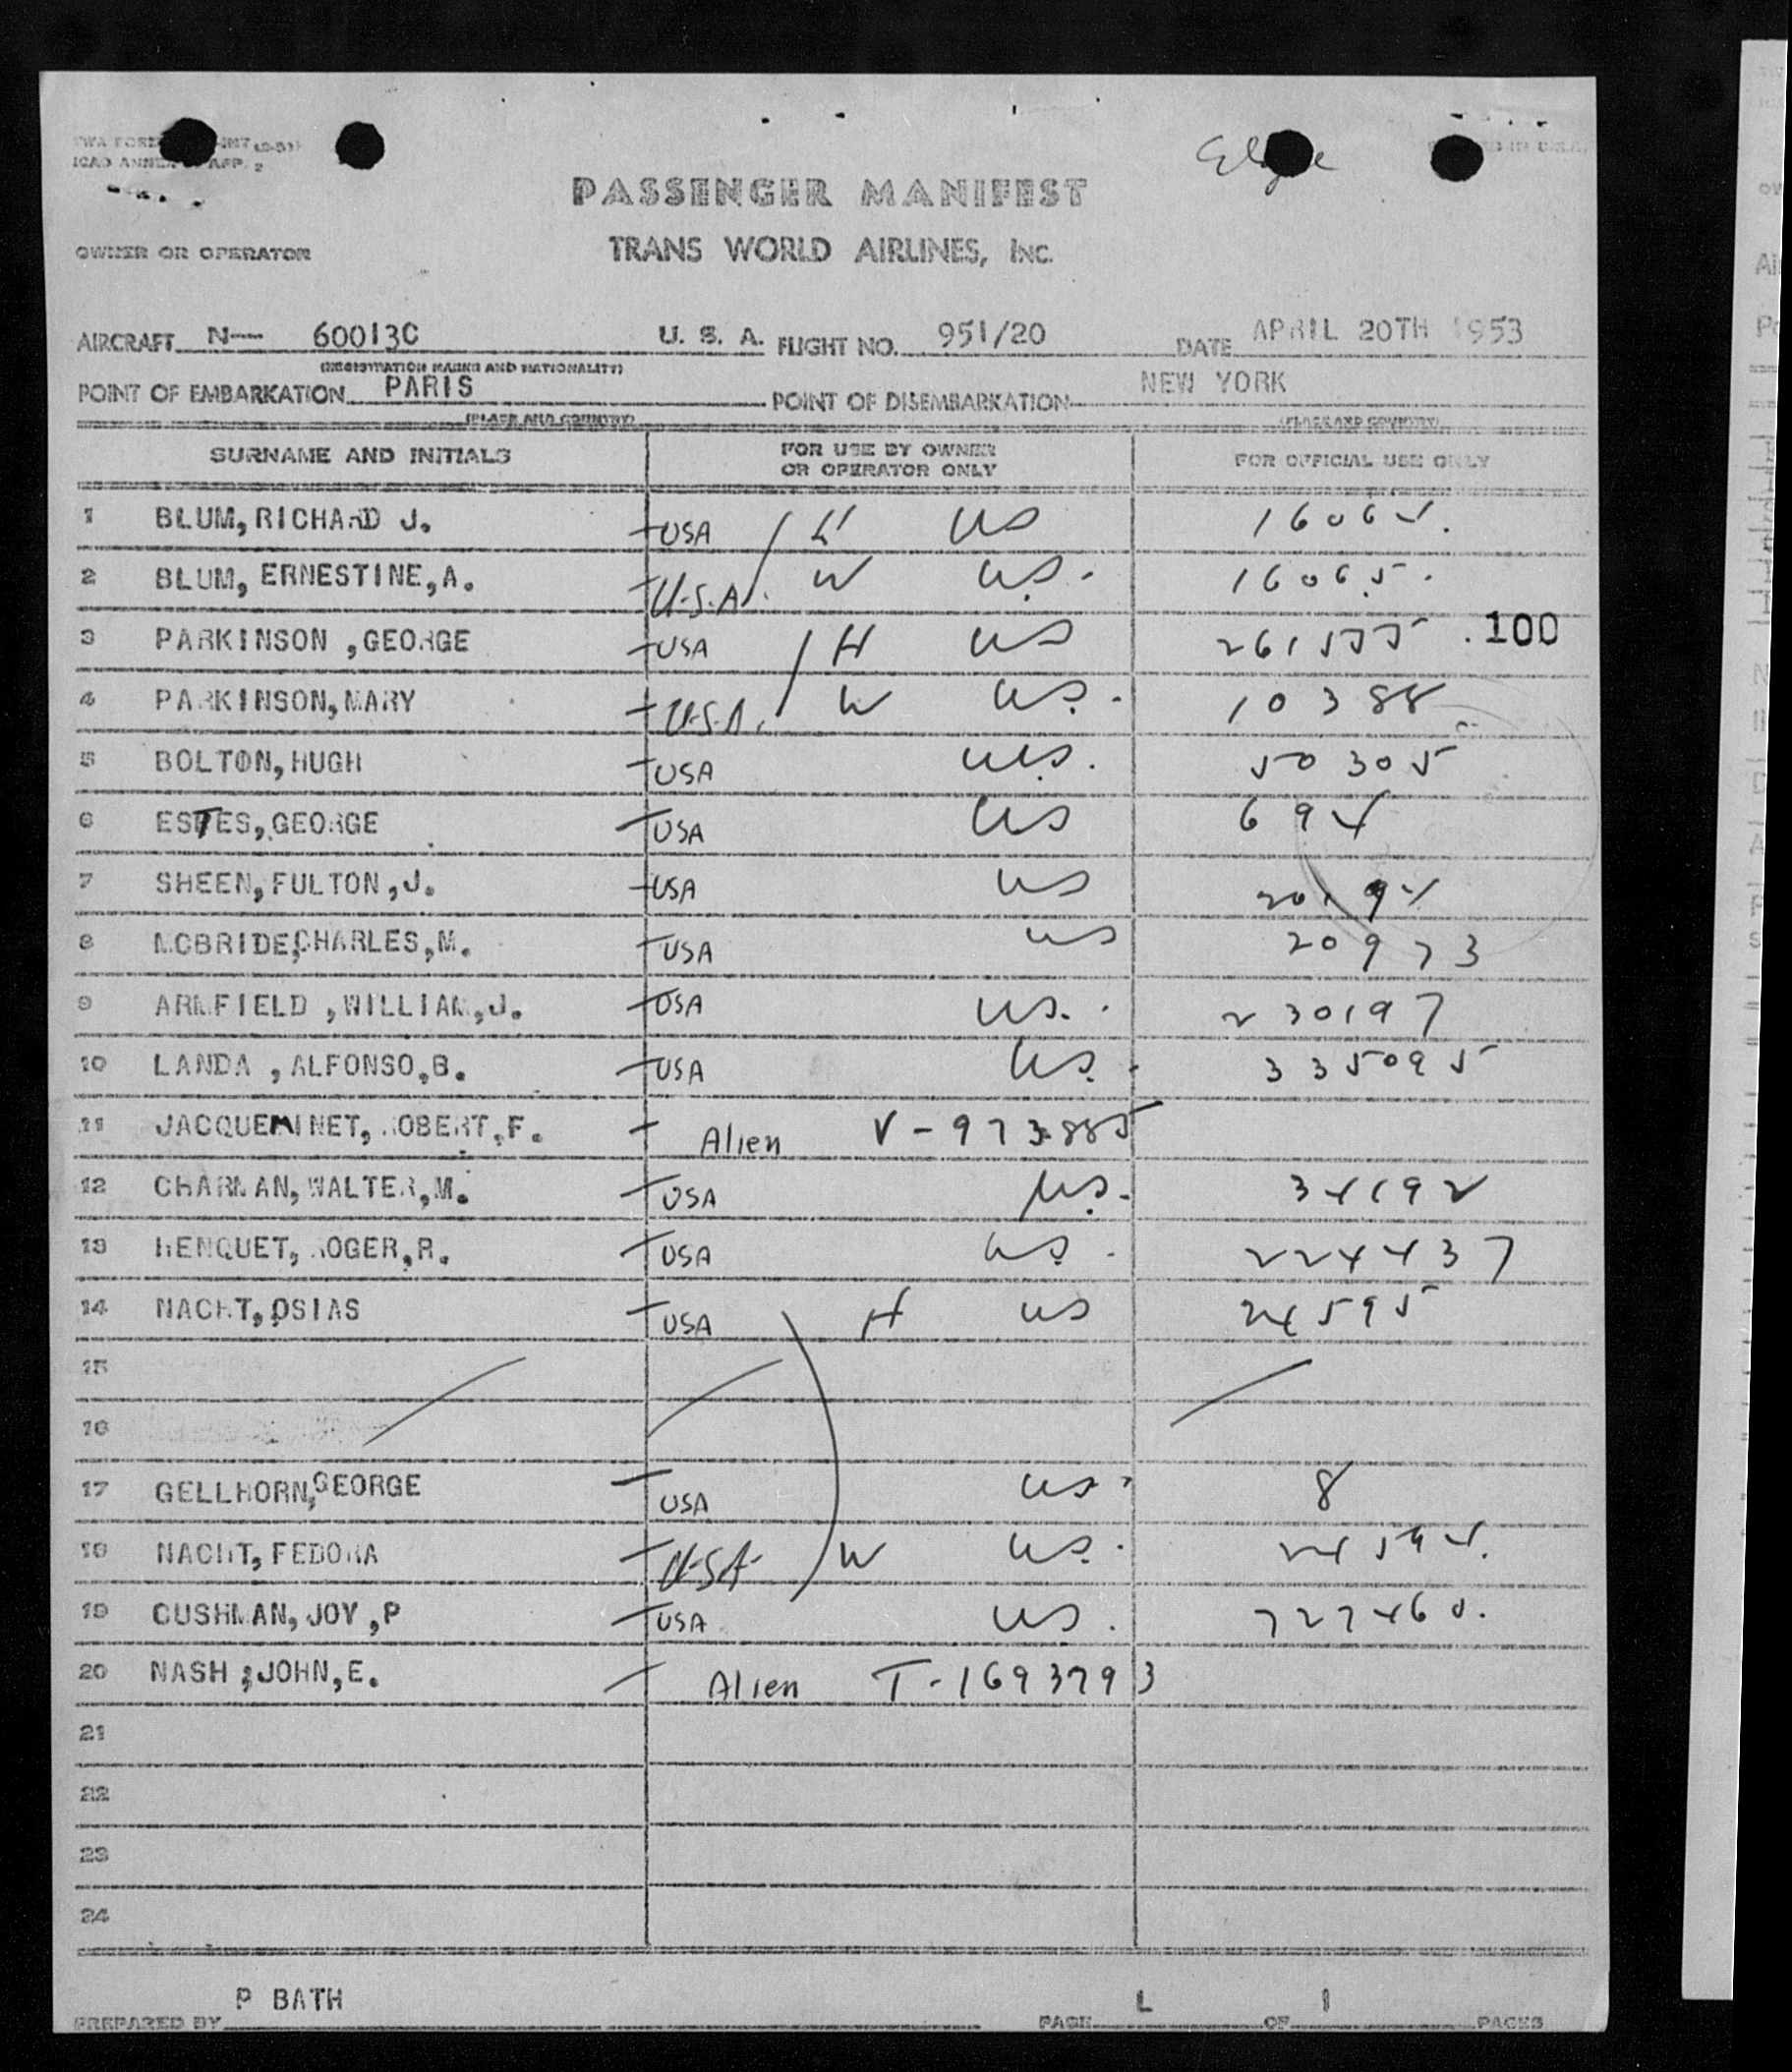 ICAO ANNEX APP. 2
PASSENGER MANIFEST
OWNER OR OPERATOR
TRANS WORLD AIRLINES, INC.
AIRCRAFT N— 60013C U. S. A. FLIGHT NO. 951/20 DATE APRIL 20TH 1953
(REGISTRATION MARKS AND NATIONALITY)
POINT OF EMBARKATION PARIS POINT OF DISEMBARKATION NEW YORK
(PLACE AND COUNTRY) (PLACE AND COUNTRY)
SURNAME AND INITIALS FOR USE BY OWNER OR OPERATOR ONLY FOR OFFICIAL USE ONLY
1 BLUM, RICHARD J. USA H US 16064.
2 BLUM, ERNESTINE, A. U.S.A. W US. 16065.
3 PARKINSON , GEORGE USA H US 261555 .100
4 PARKINSON, MARY U.S.A. W US. 10388
5 BOLTON, HUGH USA U.S. 50305
6 ESTES, GEORGE USA US 694
7 SHEEN, FULTON , J. USA US 20194
8 MCBRIDE, CHARLES, M. USA US 20973
9 ARMFIELD , WILLIAM, J. USA US. 230197
10 LANDA , ALFONSO, B. USA US. 335095
11 JACQUEMINET, ROBERT, F. Alien V-973885
12 CHARMAN, WALTER, M. USA US. 34192
13 HENQUET, ROGER, R. USA US. 224437
14 NACHT, OSIAS USA H US 24595
15
16
17 GELLHORN, GEORGE USA US. 8
18 NACHT, FEDORA U.S.A. W US. 24594.
19 CUSHMAN, JOY , P USA US. 727460.
20 NASH , JOHN, E. Alien T-1693793
21
22
23
24
PREPARED BY P BATH PAGE L OF 1 PAGES